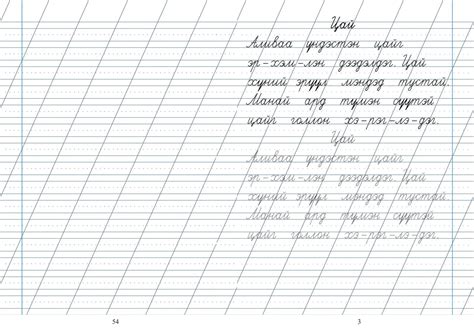 Цай
Аливаа үндэстэн цайг
эр-хэм-лэн дээдэлдэг. Цай
хүний эрүүл мэндэд тустай.
Манай ард түмэн сүүтэй
цайг голлон хэ-рэг-лэ-дэг.
Цай
Аливаа үндэстэн цайг
эр-хэм-лэн дээдэлдэг. Цай
хүний эрүүл мэндэд тустай.
Манай ард түмэн сүүтэй
цайг голлон хэ-рэг-лэ-дэг.
54
3